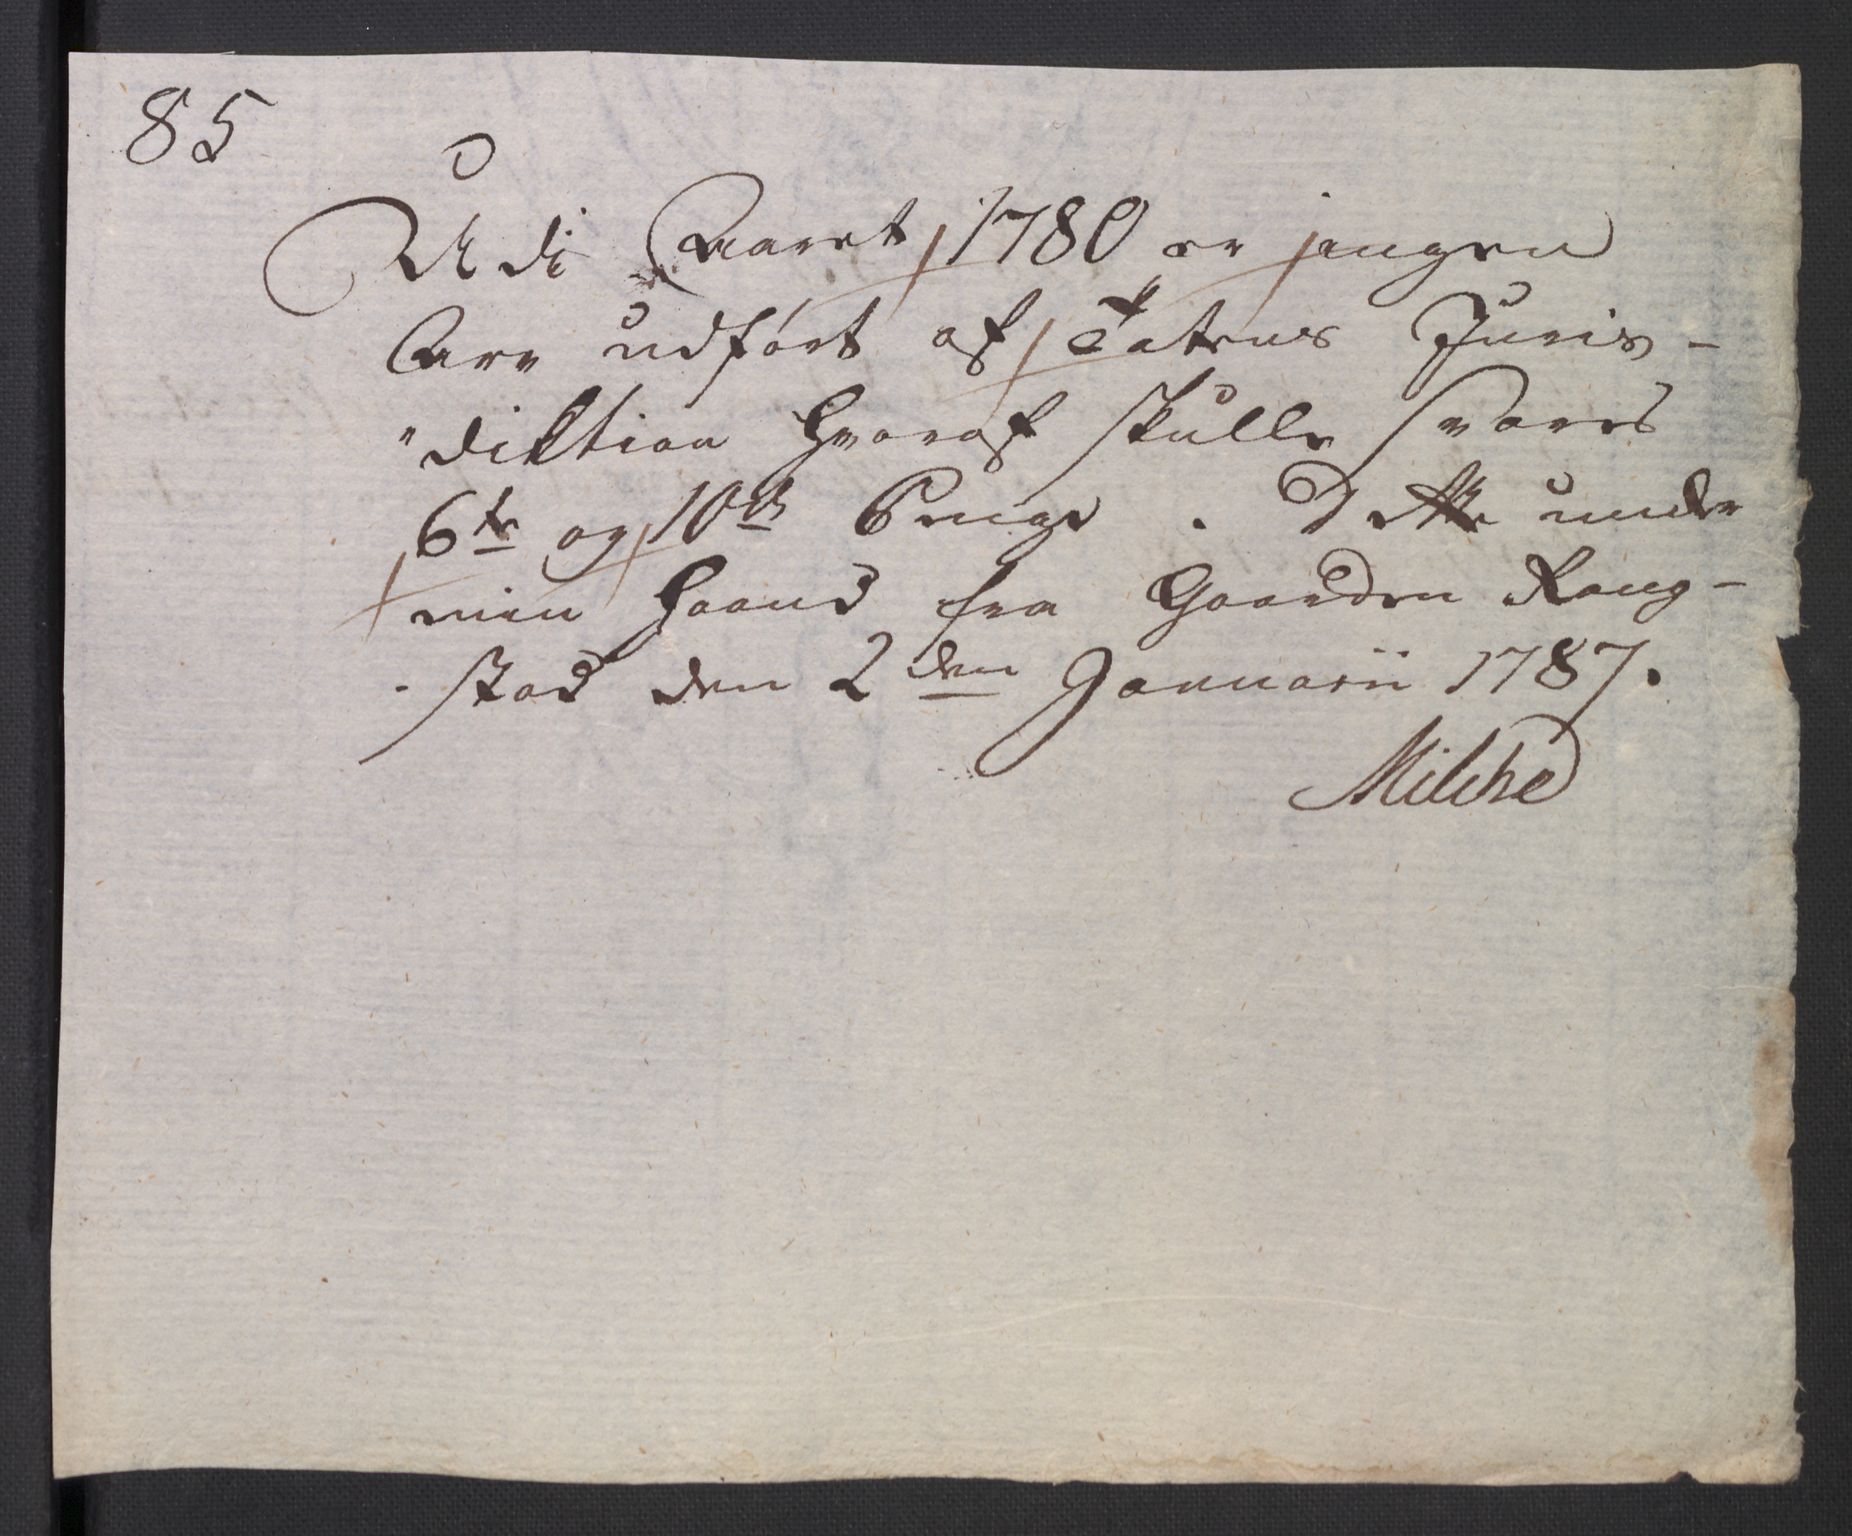 85
Udi Aaret 1780 er ingen
Arv udført af Tatens Juris-
diktion hvoraf skulle svares
6te og 10de Penge. Dette under
min Haand fra Gaarden Rang-
stad den 2den Januarii 1787.
Milche